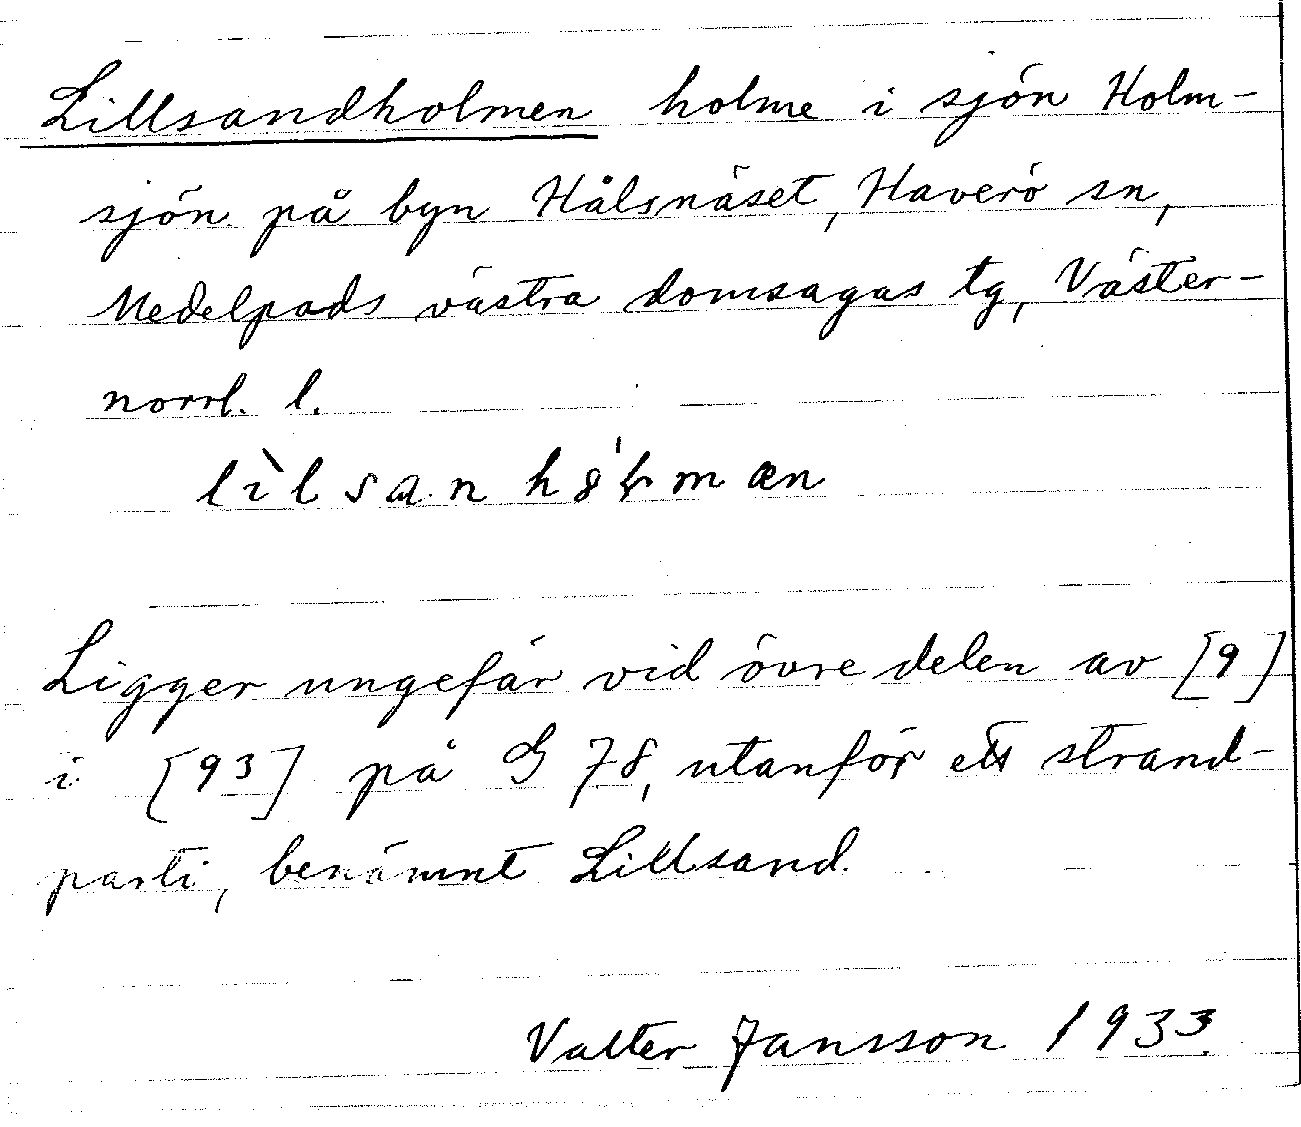 Lillsandholmen holme i sjön Holm-
sjön på byn Hålsnäset, Haverö sn,
Medelpads västra domsagas tg, Väster-
norrl. l.
lìlsan
Ligger ungefär vid övre delen av [9]
i [93] på G 78, utanför ett strand-
parti, benämnt Lillsand.
Valter Jansson 1933